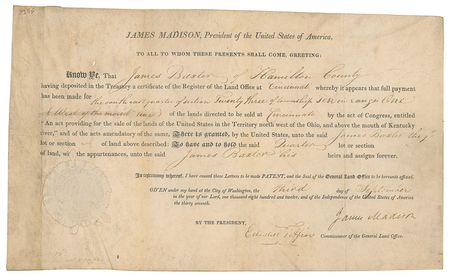 JAMES MADISON, President of the United States of America,
TO ALL TO WHOM THESE PRESENTS SHALL COME, GREETING:
Know Ye, That James Baxter of Hamilton County
having deposited in the Treasury a certificate of the Register of the Land Office at Cincinnati whereby it appears that full
payment has been made for the south east quarter of section Twenty three of township seven in range One
West of the
of the lands directed to be sold at Cincinnati by the act of Congress, entitled
"An act providing for the sale of the lands of the United States in the Territory north west of the Ohio, and above the mouth of Kentucky
river," and of the acts amendatory of the same, There is granted, by the United States, unto the said James Baxter the
lot or section of land above described: To have and to hold the said quarter
lot or section of land, with the appurtenances, unto the said James Baxter his heirs and assigns forever.
In testimony whereof, I have caused these Letters to be made PATENT, and the Seal of the General Land Office to be hereunto affixed.
GIVEN under my hand at the City of Washington, the third day of September
in the year of our Lord, one thousand eight hundred and twelve; and of the Independence of the United States of America
the thirty seventh.
James Madison
BY THE PRESIDENT,
Commissioner of the General Land Office.